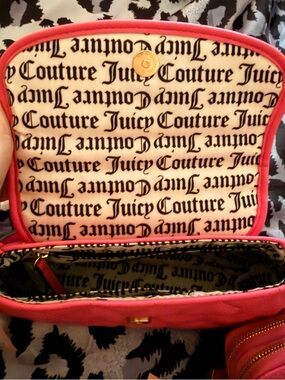 Couture Juicy
y Couture Juicy Couture Juicy
Juicy Couture Juicy
y Couture Juicy Couture Juic
Juicy Couture Juicy
Couture Juicy Couture Juic
Juicy Couture Juicy
y Couture Juicy Couture
Juicy Couture Juicy
Couture Juicy Couture
Juicy Couture Juicy
Couture Juicy Couture